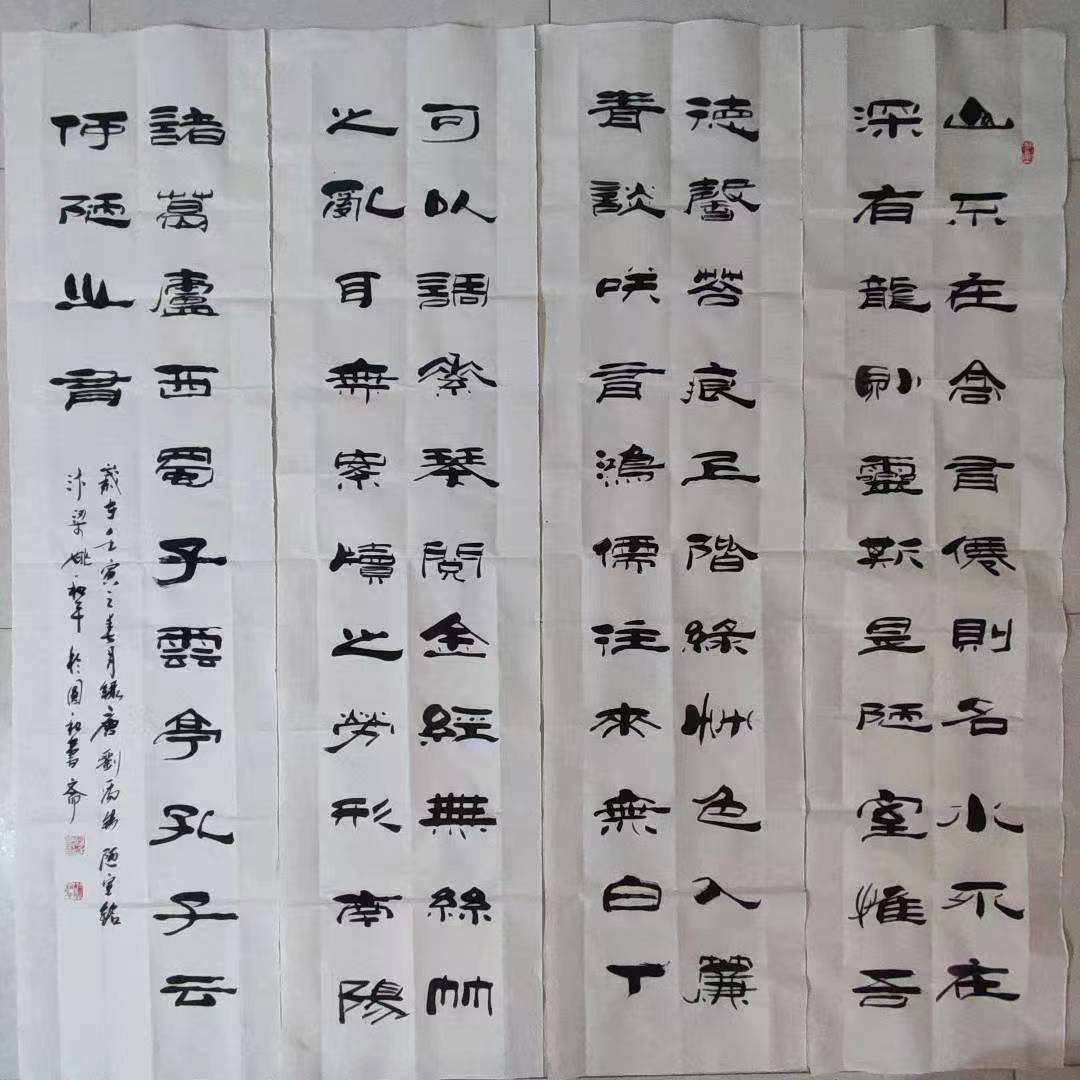 山不在高有僊則名水不在
深有龍則靈斯是陋室惟吾
德馨苔痕上階綠艸色入簾
青談咲有鴻儒往來無白丁
可以調素琴閱金經無絲竹
之亂耳無案牘之勞形南陽
諸葛廬西蜀子雲亭孔子云
何陋之有
歲在壬寅之春月錄唐劉禹錫陋室銘
汴梁姚和平於圓和書齋